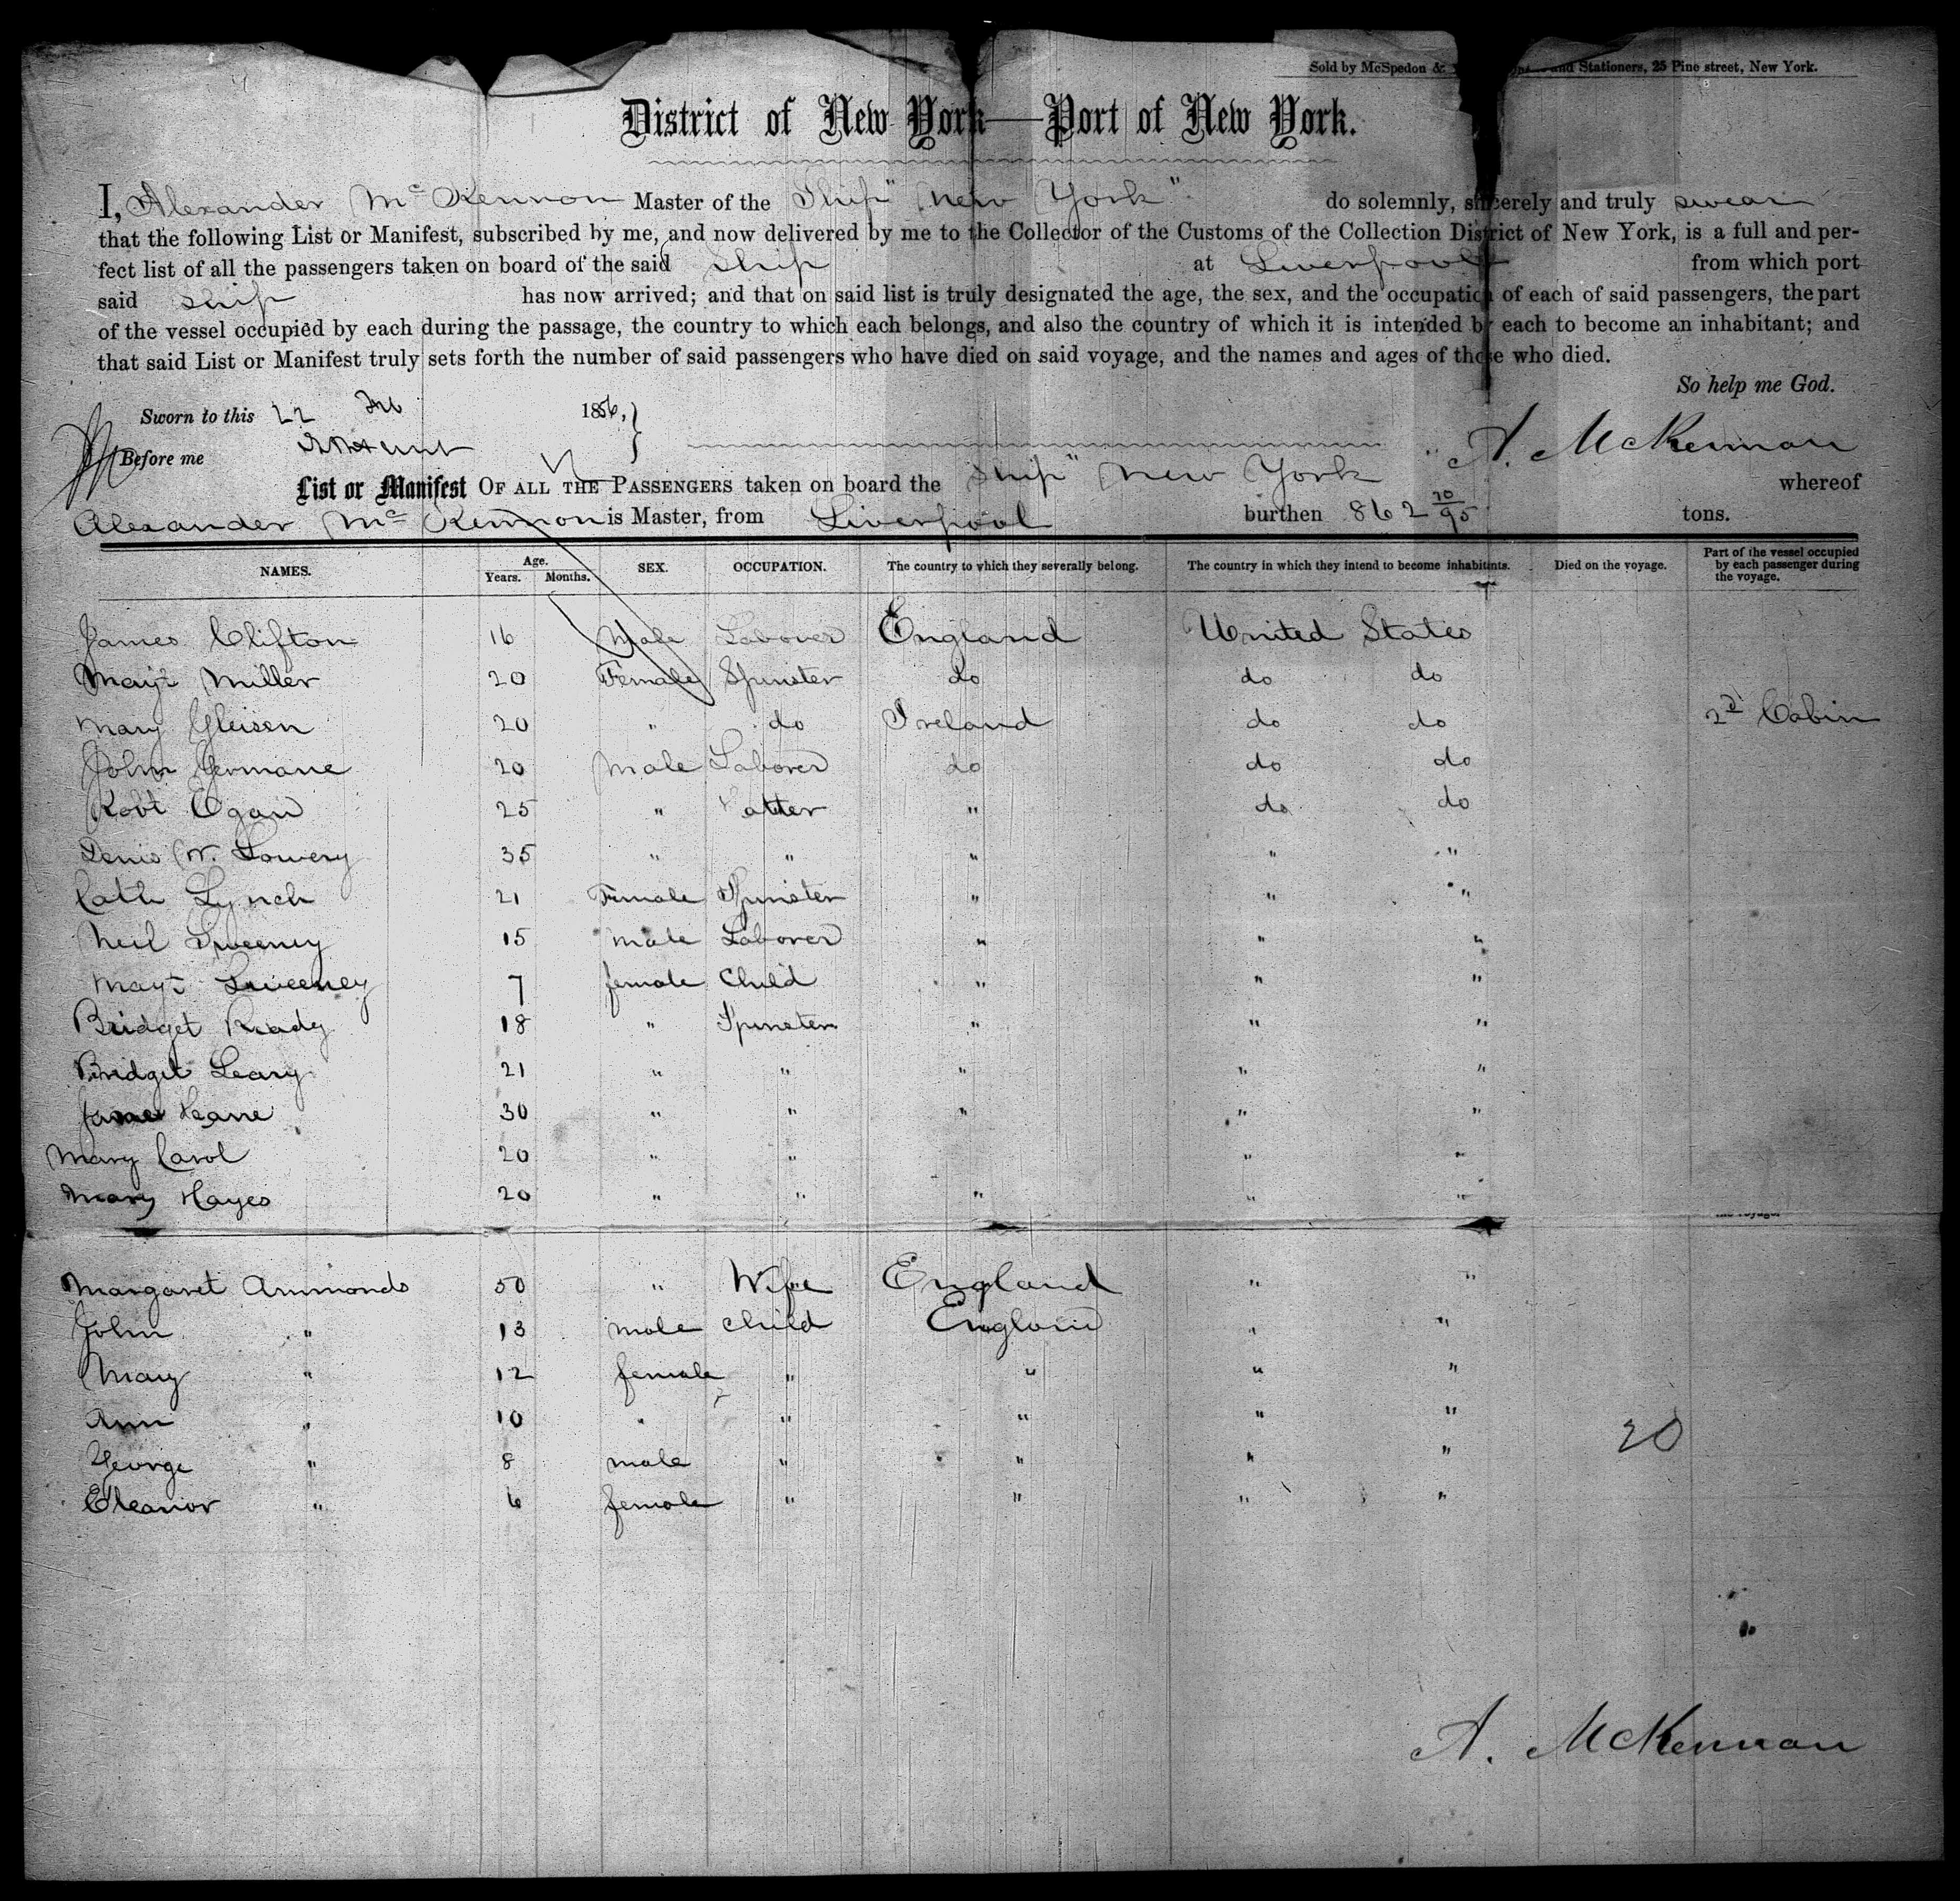 Sold by McSpedon & and Stationers, 25 Pine street, New York.
District of New York—Port of New York.
I, Alexander McKennon Master of the Ship "New York" do solemnly, sincerely and truly swear
that the following List or Manifest, subscribed by me, and now delivered by me to the Collector of the Customs of the Collection District of New York, is a full and per-
fect list of all the passengers taken on board of the said ship at Liverpool from which port
said ship has now arrived; and that on said list is truly designated the age, the sex, and the occupation of each of said passengers, the part
of the vessel occupied by each during the passage, the country to which each belongs, and also the country of which it is intended by each to become an inhabitant; and
that said List or Manifest truly sets forth the number of said passengers who have died on said voyage, and the names and ages of those who died.
So help me God.
Sworn to this 22 Feb 1856,
A. McKennan
Before me
List or Manifest OF ALL THE PASSENGERS taken on board the ship "New York whereof
Alexander McKennon is Master, from Liverpool burthen 862 70/95 tons.
NAMES. Age. Years. Months. SEX. OCCUPATION. The country to which they severally belong. The country in which they intend to become inhabitants. Died on the voyage. Part of the vessel occupied by each passenger during the voyage.
James Clifton 16 Male Laborer England United States
Mayt Miller 20 Female Spinster do do do
Mary Gleisen 20 " do Ireland do do 2d Cabin
John Germane 20 Male Laborer do do do
Robt Egan 25 " " do do
Denis W. Lowery 35 " " " " "
Cath Lynch 21 Female Spinster " " "
Neil Sweeney 15 male Laborer " " "
Mayt Sweeney 7 female Child " " "
Bridget Ready 18 " Spinster " " "
Bridget Leary 21 " " " " "
James Keane 30 " " " " "
Mary Carol 20 " " " "
Mary Hayes 20 " " " " "
the voyage.
Margaret Ammonds 50 " Wife England " "
John " 13 male child England " "
Mary " 12 female " " " "
Ann " 10 " " " " "
George " 8 male " " " "
Eleanor " 6 female " " " "
20
A. McKennan